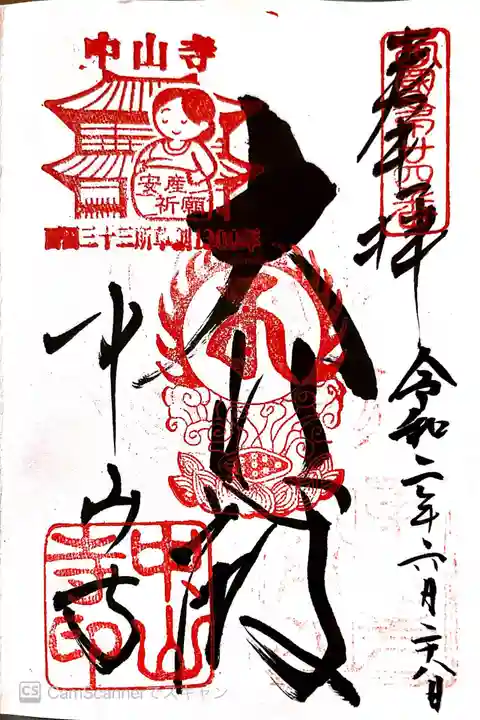 奉拝
令和二年六月二十八日
西国第廿四番
大悲殿
中山寺
中山寺
安産
祈願
西国三十三所草創1300年
中山寺印
CS CamScannerでスキャン